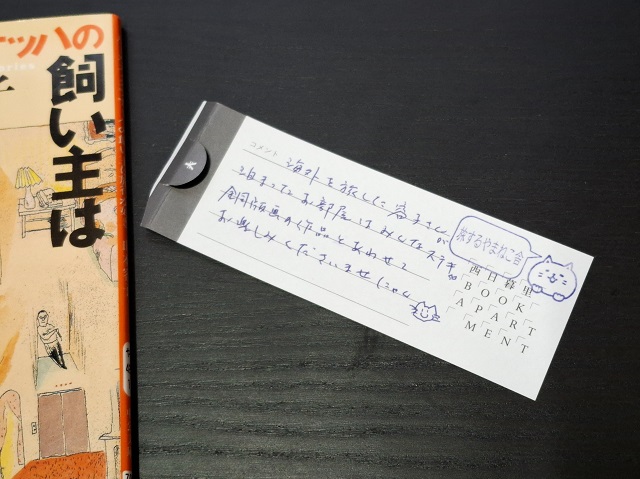 ッハの
飼い主は
コメント
海外を旅した客さんが
泊まったお部屋はみんなステキ♡
銅版画の作品とあわせて
お楽しみくださいませにゃん
旅するやまねこ舎
西日暮里
BOOK
APART
MENT